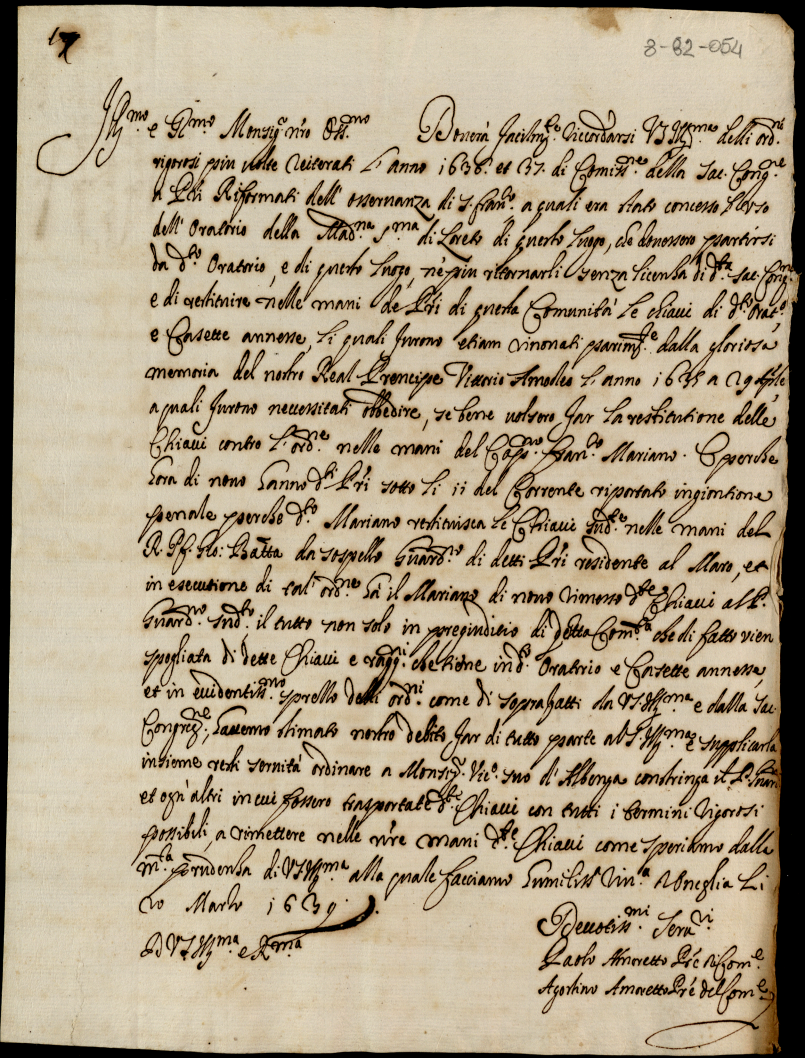 17
8-82-054
Ill.mo e R.mo Monsig.r n'ro Oss.mo Potrà facilm.te riccordarsi VS Ill.ma delli ord.ni
rigorosi più volte reiterati l'anno 1636. et 37. di Comiss.ne della Sac. Cong.ne
a P'ri Riformati dell' osservanza di S. Fran.co, a quali era stato concesso l'uso
dell' Oratorio della Mad.na S.ma di Loreto di questo luogo, che dovessero partirsi
da d.to Oratorio, e di questo luogo, né più ritornarli senza licenza di d.ta Sac. Cong.ne
e di restituire nelle mani de P'ri di questa Comunità le chiavi di d.to Orat.o
e Casette annesse, li quali furono etiam rinovati parim.te dalla gloriosa
memoria del nostro Real Prencipe Vittorio Amedeo l'anno 1635 a 29
a quali furono necessitati obbedire, se bene volsero far la restitutione delle
Chiavi contro l'ord.ne nelle mani del Cap.no Fran.co Mariano. E perche
hora di novo hanno d.ti P'ri sotto li 11 del Corrente riportato ingiontione
penale perche d.to Mariano restituisca le Chiavi sud.te nelle mani del
R. P. f. Gio: Batta da Sospello Guard.no di detti P'ri residente al Maro, et
in esecutione di tal' ord.ne hà il Mariano di novo rimesso d.te Chiavi al P.
Guard.no sud.to il tutto non solo in pregiuditio di detta Com.tà che di fatto vien
spogliata di dette Chiavi e ragg.ni che tiene in d.to Oratorio e Casette annesse,
et in evidentiss.mo sprezzo delli ord.ni come di sopra fatti da VS Ill.ma e dalla Sac.
Congreg.ne, havemo stimato nostro debito far di tutto parte a VS Ill.ma e supplicarla
insieme resti servita ordinare a Monsig.r Vic.o suo d'Albenga constringa il P. Guard.
et ogn'altri in cui fossero trasportate d.te Chiavi con tutti i termini rigorosi
possibili, a rimettere nelle n're mani d.te Chiavi come speriamo dalla
m.ta prudenza di VS Ill.ma alla quale facciamo humiliss. riv.a Oneglia li
20 Marzo 1639.
D VS Ill.ma e R.ma
Devotiss.mi Serv.ri
Paolo Amoretto P're di Com.e
Agostino Amoretto P're del Com.e